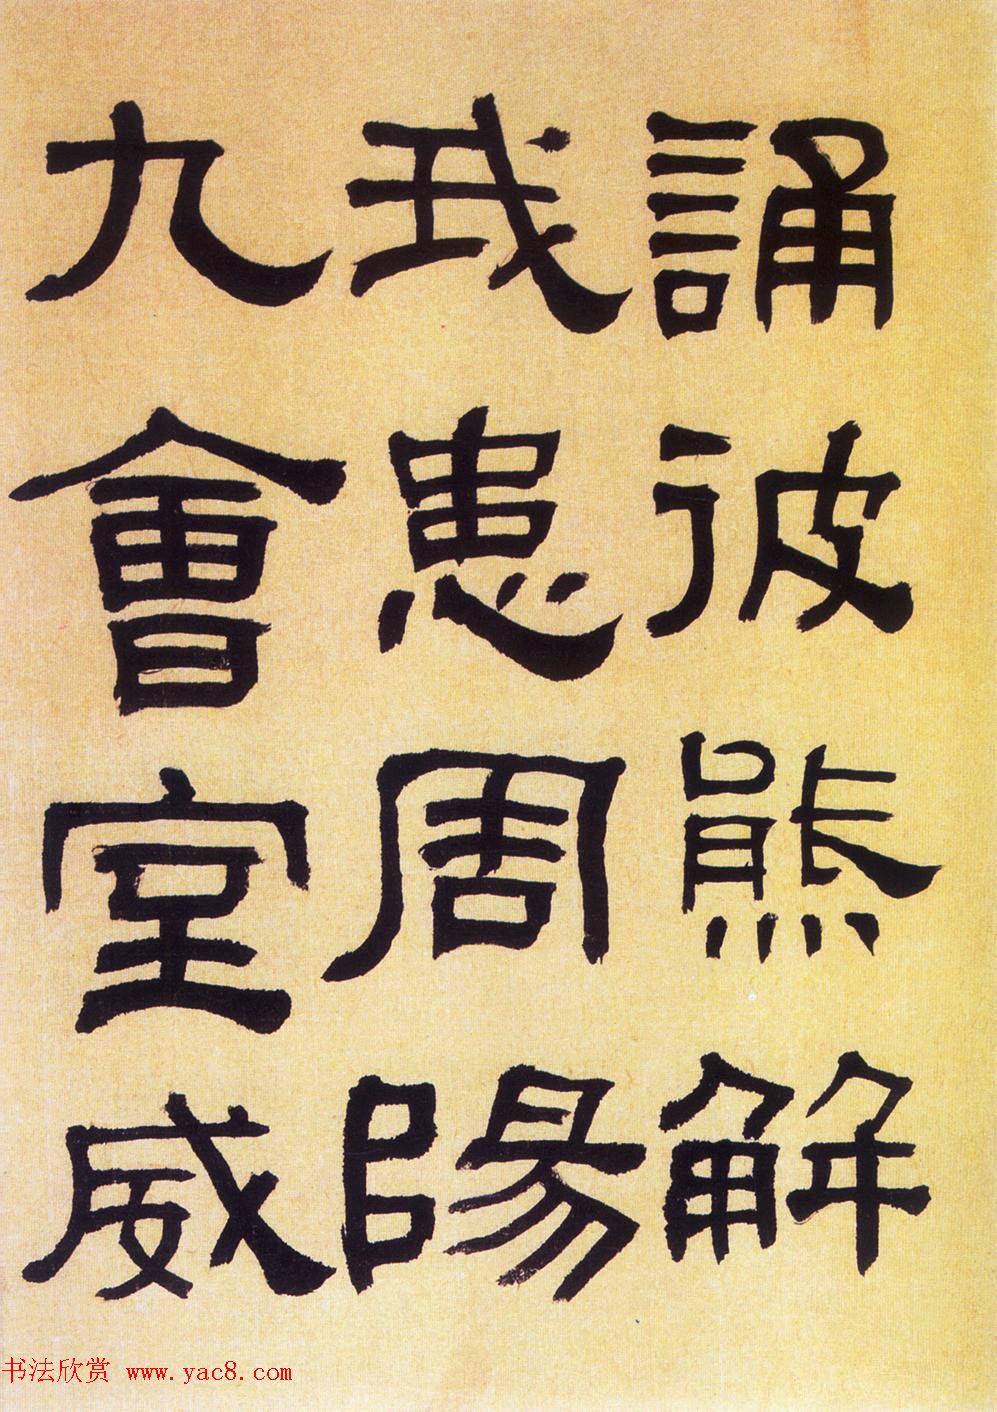 誦彼熊解
我患周陽
九會室威
书法欣赏 www.yac8.com